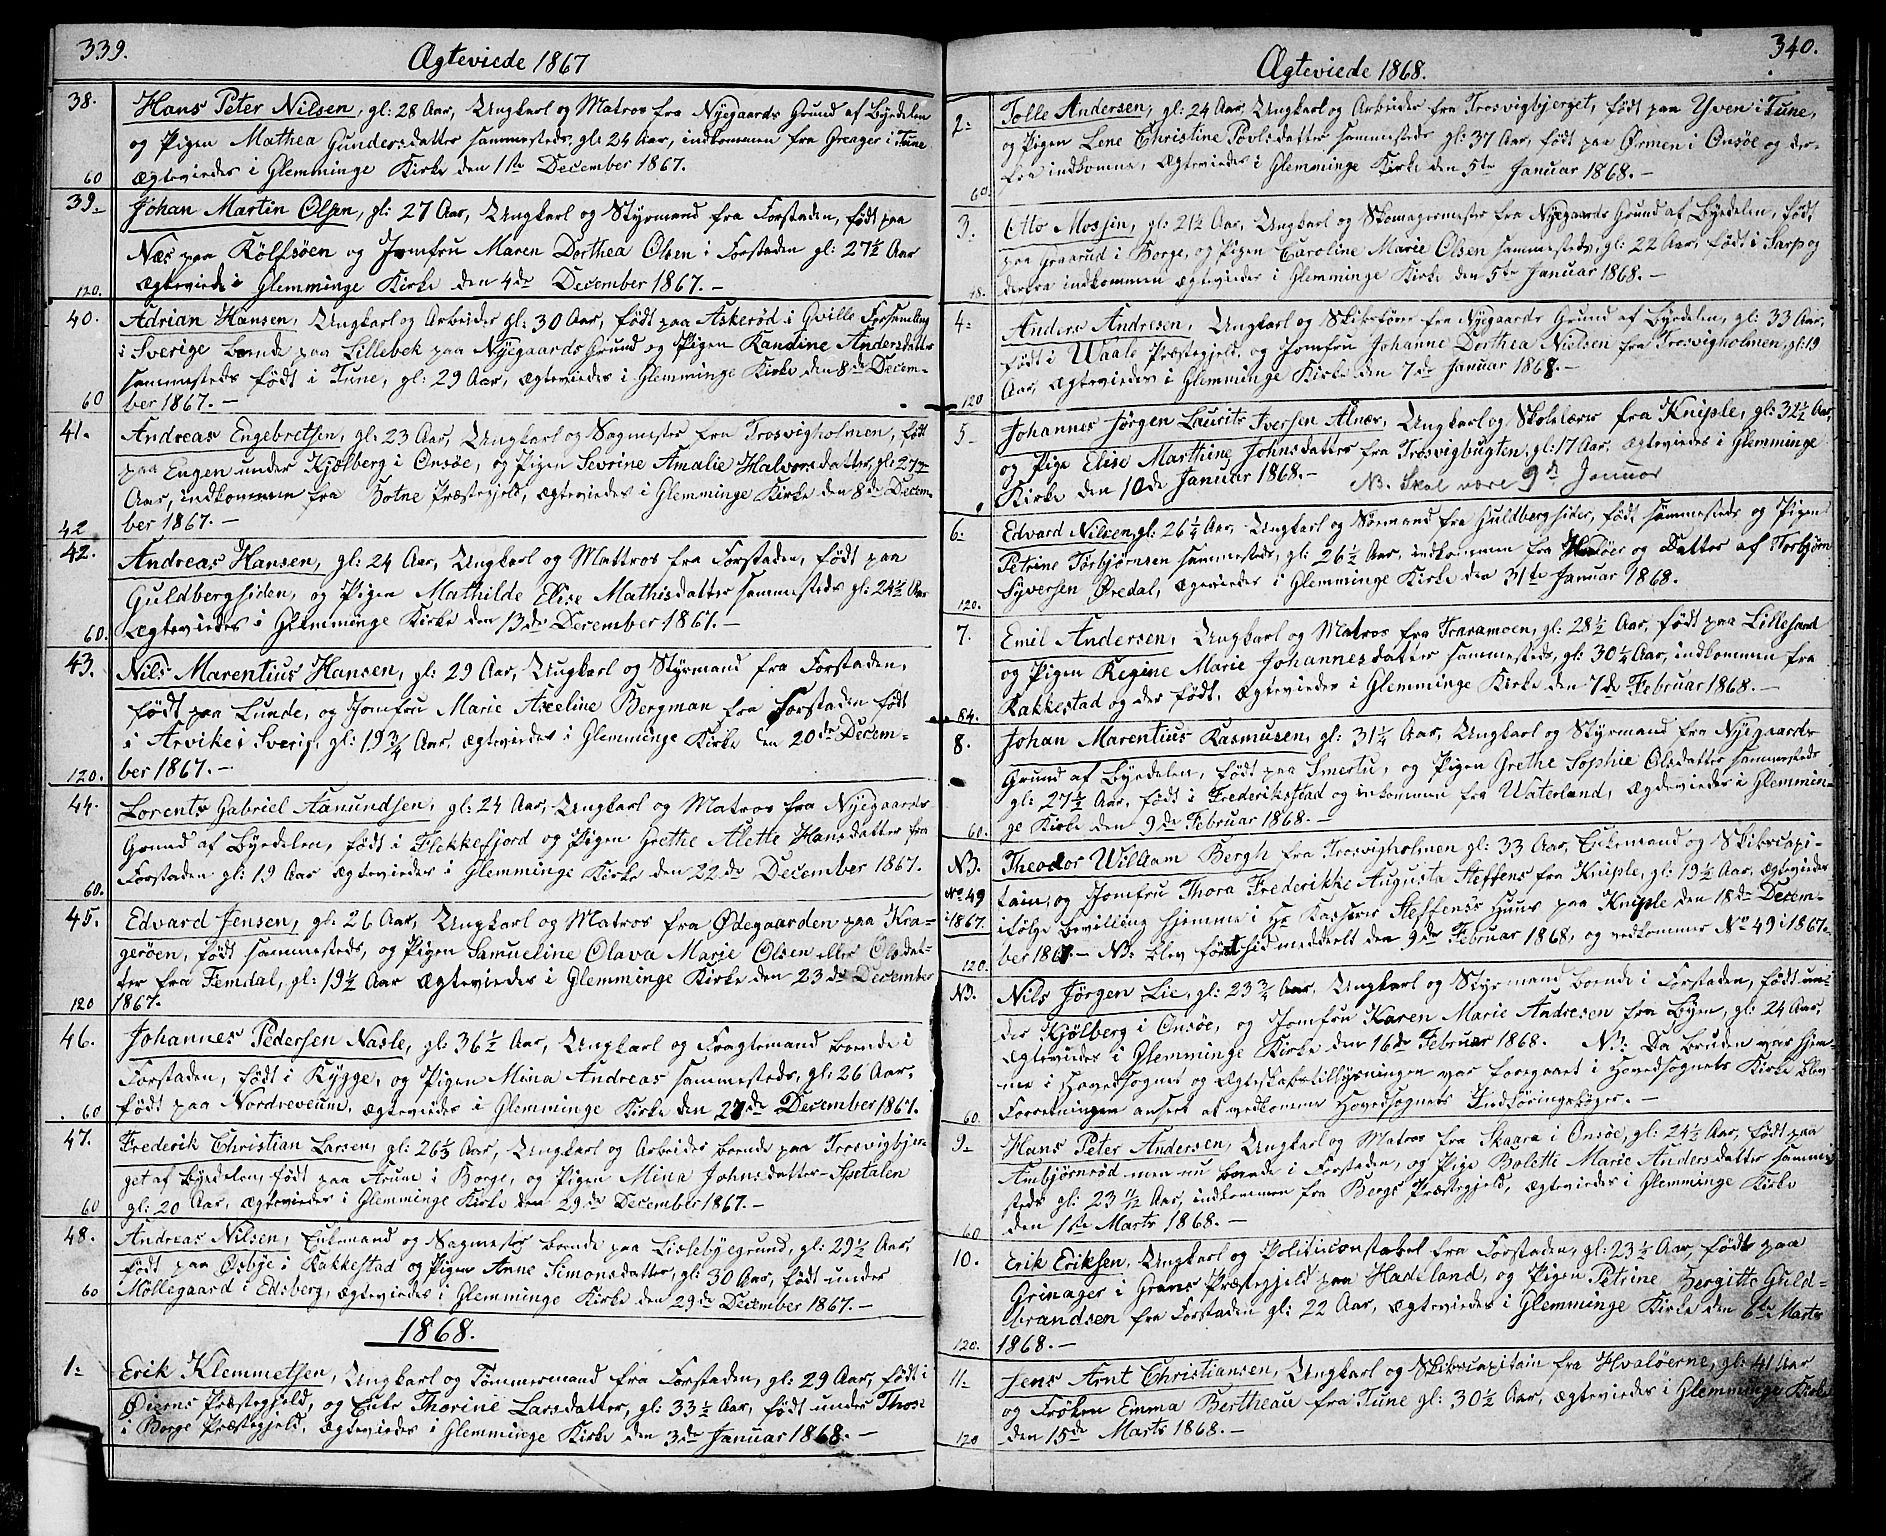 339.
Ægteviede 1867
38.
Hans Peter Nilsen, gl: 28 Aar, Ungkarl og Matros fra Nyegaards Grund af Byedelen
og Pigen Mathea Gundersdatter sammesteds, gl: 24 Aar, indkommen fra Greager i Tune
60 Ægteviedes i Glemminge Kirke den 1ste December 1867.
39.
Johan Martin Olsen, gl: 27 Aar, Ungkarl og Styrmand fra Forstaden, født paa
Næs paa Rölfsöen og Jomfru Maren Dorthea Olsen i Forstaden gl: 27½ Aar
120. Ægteviede i Glemminge Kirke den 4de December 1867. –
40.
Adrian Hansen, Ungkarl og Arbeider gl: 30 Aar, født paa Askerød i Qville Forsamling
i Sverige boende paa Lillebek paa Nyegaards Grund og Pigen Randine Andersdatter
sammesteds født i Tune, gl: 29 Aar, Ægteviedes i Glemminge Kirke den 8de Decem-
60 ber 1867. –
41.
Andreas Engebretsen, gl: 23 Aar, Ungkarl og Sagmester fra Trosvigholmen, født
paa Engen under Kjølberg i Onsøe, og Pigen Sevrine Amalie Halvorsdatter, gl: 27
Aar, indkommen fra Præstegjeld, Ægteviedes i Glemminge Kirke den 8de Decem-
42 ber 1867. –
42.
Andreas Hansen, gl: 24 Aar, Ungkarl og Mattros fra Forstaden, født paa
Guldbergsiden, og Pigen Mathilde Elise Mathisdatter sammesteds gl: 24½ Aar
60. Ægteviedes i Glemminge Kirke den 13de December 1867. –
43.
Nils Marentius Hansen, gl: 29 Aar, Ungkarl og Styrmand fra Forstaden,
født paa Lunde, og Jomfru Marie Axeline Bergman fra Forstaden født
i Arvike i Sverig, gl: 19¾ Aar, Ægteviedes i Glemminge Kirke den 20de Decem-
120. ber 1867. –
44.
Lorents Gabriel Aanundsen, gl: 24 Aar, Ungkarl og Matros fra Nyegaards
Grund af Byedelen, født i Flekkefjord og Pigen Grethe Alette Hansdatter fra
60. Forstaden gl: 19 Aar Ægteviedes i Glemminge Kirke den 22de December 1867.
45.
Edvard Jensen, gl: 26 Aar, Ungkarl og Matros fra Ødegaarden paa Kra-
gerøen, født sammesteds, og Pigen Samueline Olava Marie Olsen eller Olsdat-
ter fra Femdal, gl: 19½ Aar Ægteviedes i Glemminge Kirke den 23de December
120 1867.
46.
Johannes Pedersen Nasle, gl: 36½ Aar, Ungkarl og Fragtemand boende i
Forstaden, født i Rygge, og Pigen Mina Andreas sammesteds, gl: 26 Aar,
60 født paa Nordreveum, Ægteviedes i Glemminge Kirke den 27de December 1867.
47.
Frederik Christian Larsen, gl: 26½ Aar, Ungkarl og Arbeider boende paa Trosvigbjer-
get af Byedelen, født paa Arum i Borge, og Pigen Mina Johnsdatter Spetalen
60 gl: 20 Aar, Ægteviedes i Glemminge Kirke den 29de December 1867. –
48.
Andreas Nilsen, Enkemand og Sagmester boende paa Lislebyegrund, gl: 29½ Aar,
født paa Østbye i Rakkestad og Pigen Anne Simonsdatter, gl: 30 Aar, født under
60 Møllegaard i Edsberg, Ægteviedes i Glemminge Kirke den 29de December 1867. –
1868.
1.
Erik Klemmetsen, Ungkarl og Tømmermand fra Forstaden, gl: 29 Aar, født i
Øierns Præstegjeld, og Enke Thorine Larsdatter, gl: 33½ Aar, født under Those
i Borge Præstegjeld, Ægteviedes i Glemminge Kirke den 3de Januar 1868. –
340.
Ægteviede 1868.
2.
Tolle Andersen, gl: 24 Aar, Ungkarl og Arbeider fra Trosvigbjerget, født paa Yven i Tune,
og Pigen Lene Christine Povlsdatter sammesteds gl: 37 Aar, født paa Ørmen i Onsøe og der-
60. fra indkomne, Ægteviedes i Glemminge Kirke den 5te Januar 1868. –
3.
Otto Mosjin, gl: 21½ Aar, Ungkarl og Skomagermester fra Nyegaards Grund af Byedelen, født
paa Graarud i Borge, og Pigen Caroline Marie Olsen sammesteds, gl: 22 Aar, født i Sarp og
48. derfra indkommen Ægteviedes i Glemminge Kirke den 5te Januar 1868. –
4.
Anders Andresen, Ungkarl og Skibsfører fra Nyegaards Grund af Byedelen, gl: 33 Aar,
født i Waale Præstegjeld, og Jomfru Johanne Dorthea Nielsen fra Trosvigholmen, gl: 19
120 Aar, Ægteviedes i Glemminge Kirke den 7de Januar 1868. –
5
Johannes Jørgen Laurits Iversen Alnæs, Ungkarl og Skolelærer fra Kniple, gl: 32½ Aar,
og Pige Elise Marthine Johnsdatter fra Trosvigbugten, gl: 17 Aar, Ægteviedes i Glemminge
Kirke den 10de Januar 1868. – NB. Skal være 9de Januar
6.
Edvard Nilsen, gl: 26¼ Aar, Ungkarl og Sømand fra Guldbergsiden, født sammesteds og Pigen
Petrine Torbjørnsen sammesteds, gl: 26½ Aar, indkommen fra Hvaløer og Datter af Torbjørn
120. Syversen Øredal, Ægteviedes i Glemminge Kirke den 31te Januar 1868.
7.
Emil Andersen, Ungkarl og Matros fra Traramoen, gl: 28½ Aar, født paa Lillefjord
og Pigen Regine Marie Johannesdatter sammesteds, gl: 30¼ Aar, indkommen fra
84. Rakkestad og der født, Ægteviedes i Glemminge Kirke den 7de Februar 1868. –
8.
Johan Marentius Rasmusen, gl: 31¼ Aar, Ungkarl og Styrmand fra Nyegaards
Grund af Byedelen, født paa Smertu, og Pigen Grethe Sophie Olsdatter sammesteds
gl: 27½ Aar, født i Frederikstad og inkommen fra Waterland, Ægteviedes i Glemmin-
60. ge Kirke den 9de Februar 1868. –
NB.
No 49
1867.
Theodor William Bergh fra Trosvigholmen gl: 33 Aar, Enkemand og Skibscapi-
tain, og Jomfru Thora Frederikke Augusta Steffens fra Kniple, gl: 19½ Aar, Ægteviedes
ifølge Bevilling hjemme i Hr Kasserer Steffens's Huus paa Kniple den 18de Decem-
120. ber 1867. – NB: blev først hid meddelt den 9de Februar 1868, og vedkommer No 49 i 1867.
NB.
Nils Jörgen Lie, gl: 23¾ Aar, Ungkarl og Styrmand boende i Forstaden, født un-
der Kjølberg i Onsøe, og Jomfru Karen Marie Andresen fra Byen, gl: 24 Aar,
Ægteviedes i Glemminge Kirke den 16de Februar 1868. NB: Da Bruden var hjem-
me i Hovedsognet og Ægteskabstillysningen var foregaaet i Hovedsognets Kirke blev
60. Forretningen anseet at vedkomme Hovedsognets Indføringsbøger. –
9.
Hans Peter Andersen, Ungkarl og Matros fra Skaara i Onsøe, gl: 24½ Aar, født paa
Ambjørnrød men nu boende i Forstaden, og Pige Bolette Marie Andersdatter samme-
steds gl: 23 11/12 Aar, indkommen fra Bergs Præstegjeld, Ægteviedes i Glemminge Kirke
60 den 1ste Marts 1868. –
10.
Erik Eriksen, Ungkarl og Politiconstabel fra Forstaden, gl: 23½ Aar, født paa
Grinager i Grans Præstegjeld paa Hadeland, og Pigen Petrine Bergitte Guld-
brandsen fra Forstaden gl: 22 Aar, Ægteviedes i Glemminge Kirke den 6te Marts
120. 1868. –
11.
Jens Arnt Christiansen, Ungkarl og Skibscapitain fra Hvaløerne, gl: 41 Aar
og Frøken Emma Bertheau fra Tune gl: 30½ Aar, Ægteviedes i Glemminge Kirke
120 den 15de Marts 1868. –